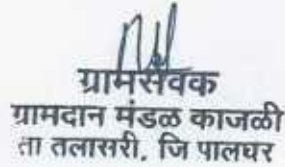 ग्रामसेवक
ग्रामदान मंडळ काजळी
ता तलासरी, जि पालघर